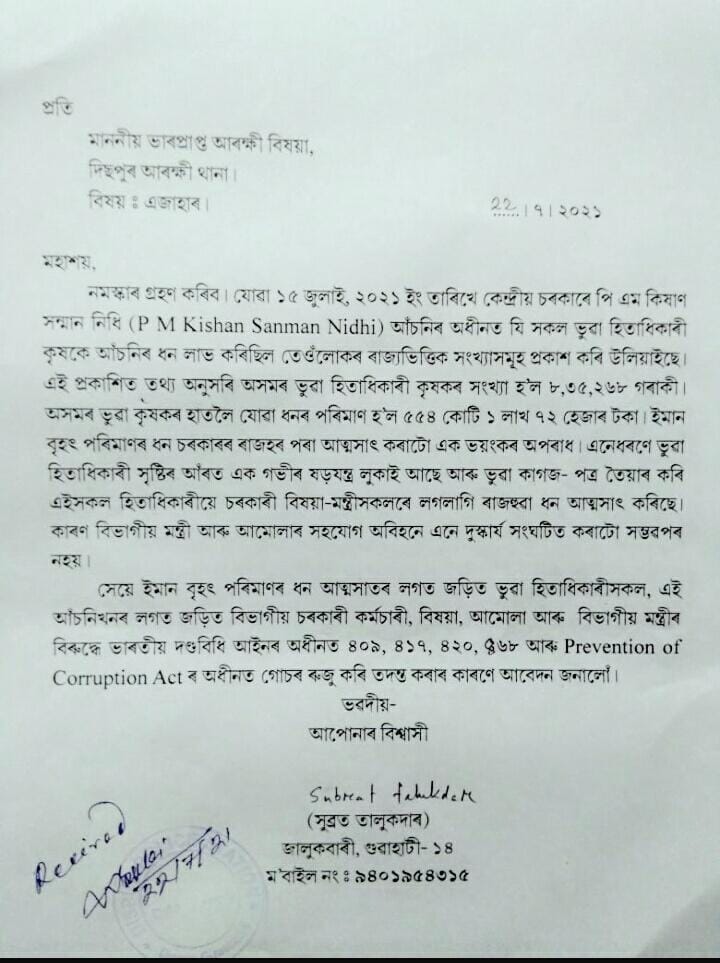 প্ৰতি
মাননীয় ভাৰপ্ৰাপ্ত আৰক্ষী বিষয়া,
দিছপুৰ আৰক্ষী থানা।
বিষয় ঃ এজাহাৰ।
22 । ৭ । ২০২১
মহাশয়,
নমস্কাৰ গ্ৰহণ কৰিব। যোৱা ১৫ জুলাই, ২০২১ ইং তাৰিখে কেন্দ্ৰীয় চৰকাৰে পি এম কিষাণ
সন্মান নিধি (P M Kishan Sanman Nidhi) আঁচনিৰ অধীনত যি সকল ভুৱা হিতাধিকাৰী
কৃষকে আঁচনিৰ ধন লাভ কৰিছিল তেওঁলোকৰ ৰাজ্যভিত্তিক সংখ্যাসমূহ প্ৰকাশ কৰি উলিয়াইছে।
এই প্ৰকাশিত তথ্য অনুসৰি অসমৰ ভুৱা হিতাধিকাৰী কৃষকৰ সংখ্যা হ'ল ৮,৩৫,২৬৮ গৰাকী।
অসমৰ ভুৱা কৃষকৰ হাতলৈ যোৱা ধনৰ পৰিমাণ হ'ল ৫৫৪ কোটি ১ লাখ ৭২ হেজাৰ টকা। ইমান
বৃহৎ পৰিমাণৰ ধন চৰকাৰৰ ৰাজহৰ পৰা আত্মসাৎ কৰাটো এক ভয়ংকৰ অপৰাধ। এনেধৰণে ভুৱা
হিতাধিকাৰী সৃষ্টিৰ আঁৰত এক গভীৰ ষড়যন্ত্ৰ লুকাই আছে আৰু ভুৱা কাগজ- পত্ৰ তৈয়াৰ কৰি
এইসকল হিতাধিকাৰীয়ে চৰকাৰী বিষয়া-মন্ত্ৰীসকলৰে লগলাগি ৰাজহুৱা ধন আত্মসাৎ কৰিছে।
কাৰণ বিভাগীয় মন্ত্ৰী আৰু আমোলাৰ সহযোগ অবিহনে এনে দুস্কাৰ্য সংঘটিত কৰাটো সম্ভৱপৰ
নহয়।
সেয়ে ইমান বৃহৎ পৰিমাণৰ ধন আত্মসাতৰ লগত জড়িত ভুৱা হিতাধিকাৰীসকল, এই
আঁচনিখনৰ লগত জড়িত বিভাগীয় চৰকাৰী কৰ্মচাৰী, বিষয়া, আমোলা আৰু বিভাগীয় মন্ত্ৰীৰ
বিৰুদ্ধে ভাৰতীয় দণ্ডবিধি আইনৰ অধীনত ৪০৯, ৪১৭, ৪২০, ৪৬৮ আৰু Prevention of
Corruption Act ৰ অধীনত গোচৰ ৰুজু কৰি তদন্ত কৰাৰ কাৰণে আবেদন জনালোঁ।
ভৱদীয়-
আপোনাৰ বিশ্বাসী
Subrat Talukdar
(সুব্ৰত তালুকদাৰ)
জালুকবাৰী, গুৱাহাটী- ১৪
ম'বাইল নং ঃ ৯৪০১৯৫৪৩১৫
Received
22/7/21